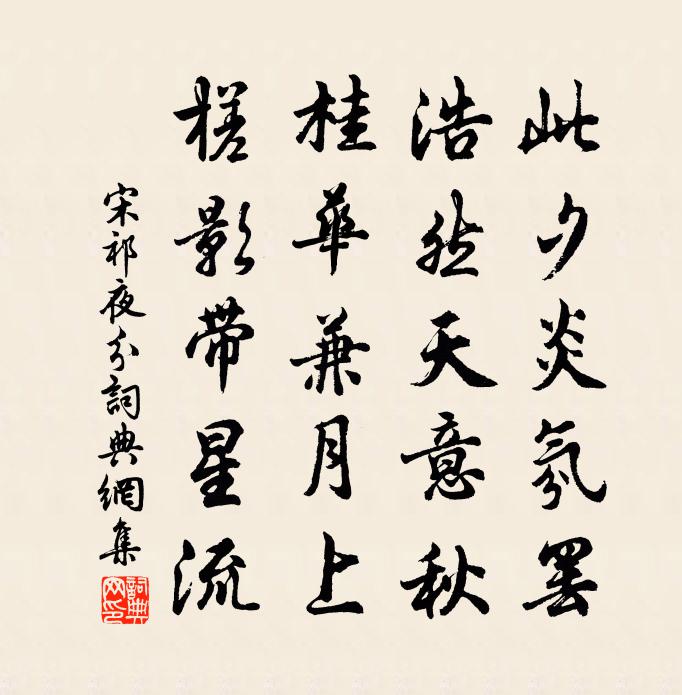 此夕炎氛罢
浩然天意秋
桂華兼月上
槎影帶星流
宋祁夜分詞典網集
詞典網印